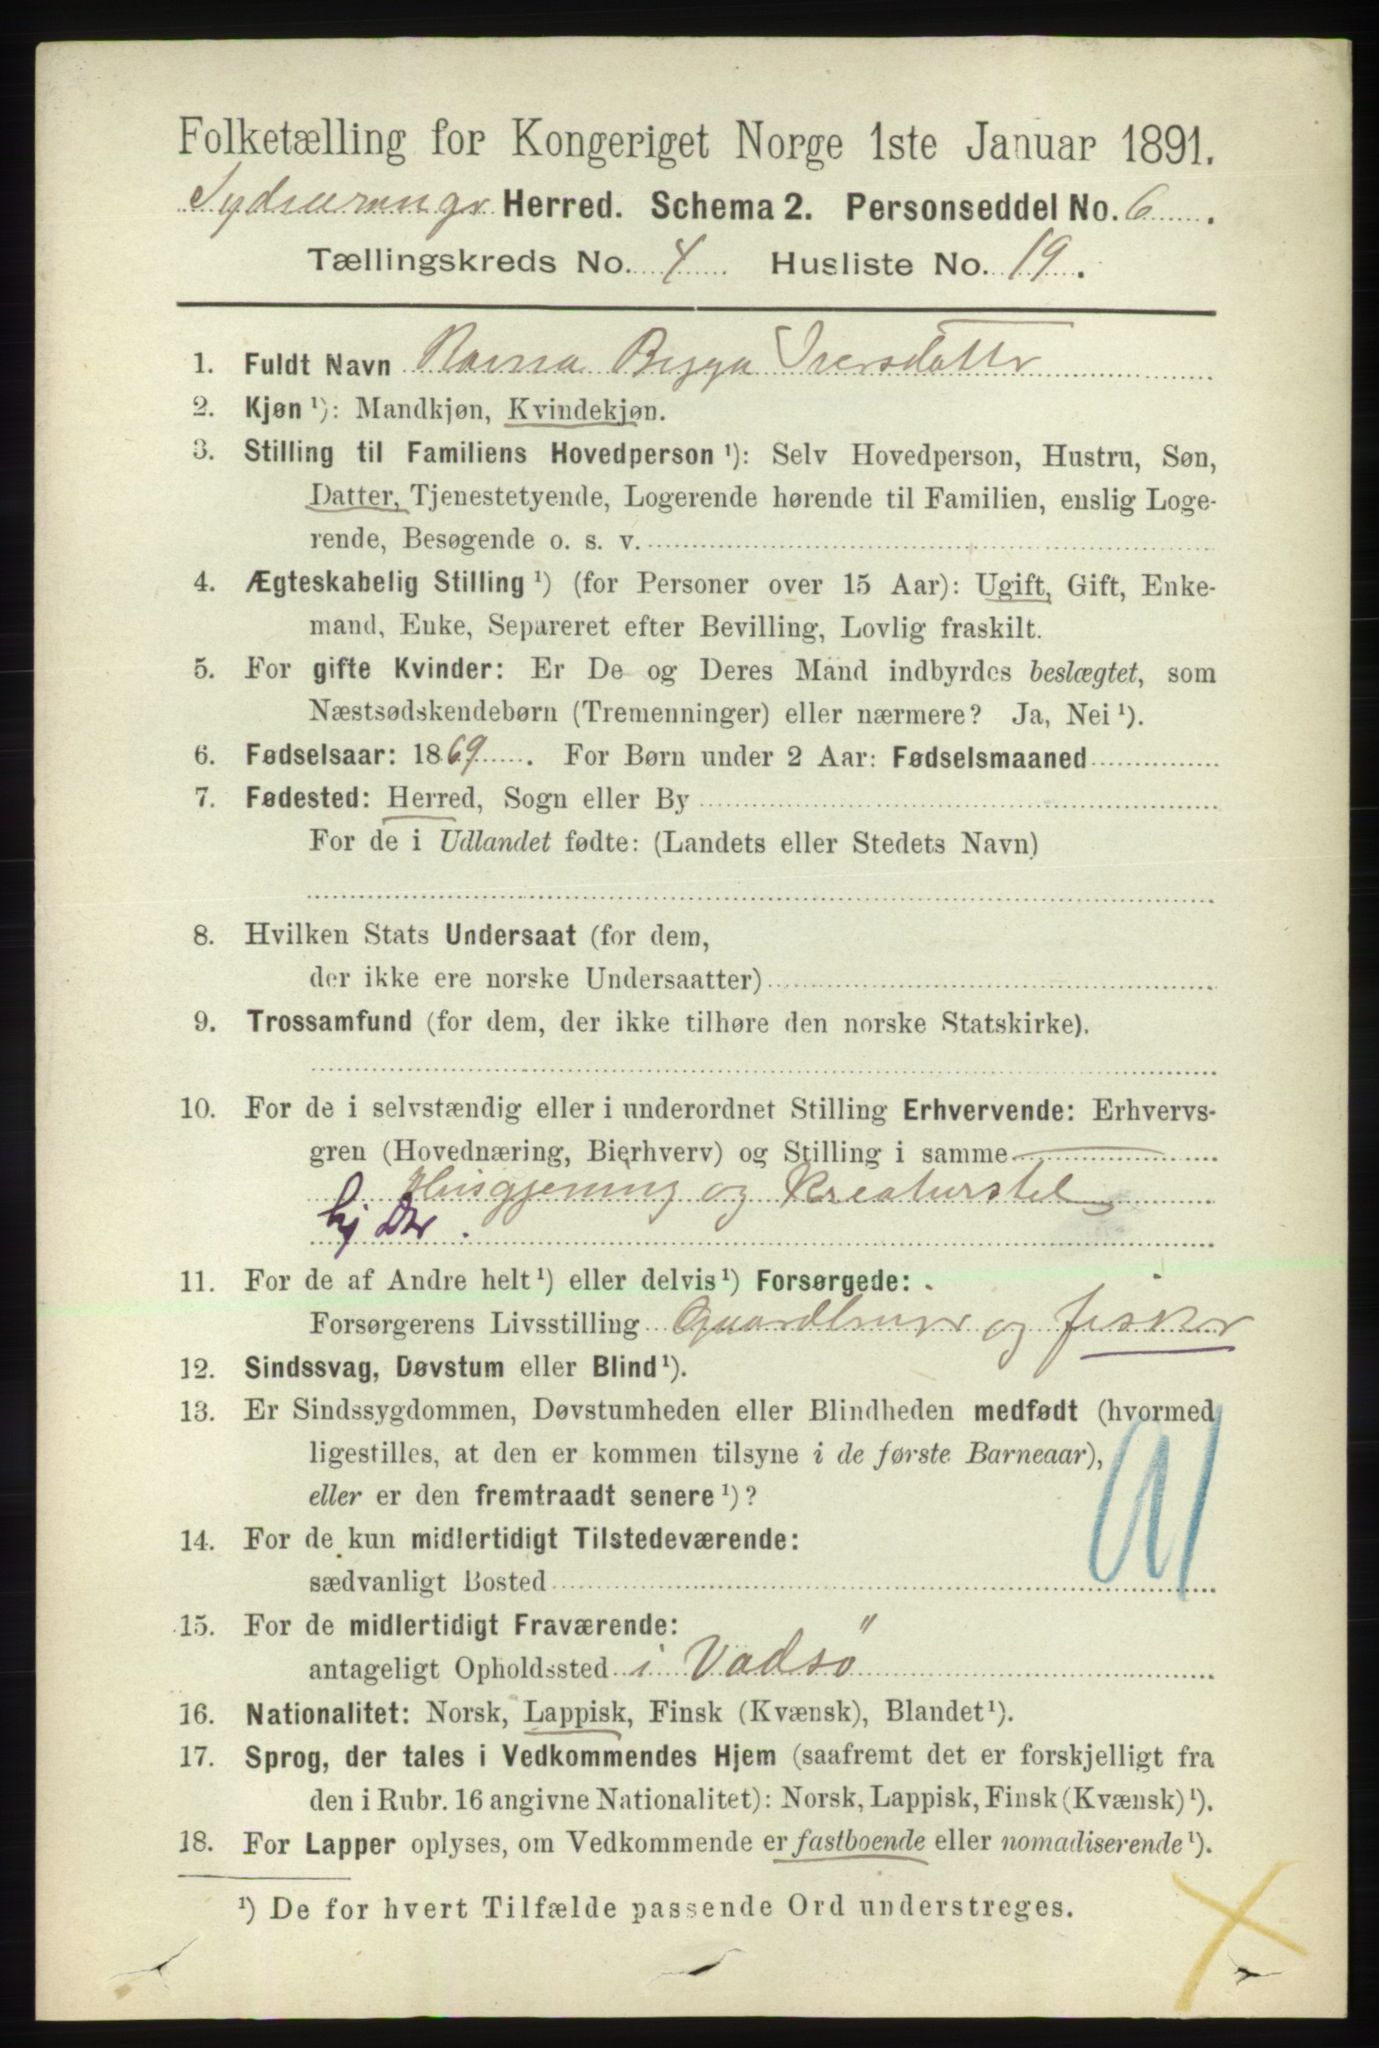 Folketælling for Kongeriget Norge 1ste Januar 1891.
Sydvaranger Herred. Schema 2. Personseddel No. 6.
Tællingskreds No. 4 Husliste No. 19.
1. Fuldt Navn Ravna Bryga Iversdatter
2. Kjøn ¹): Mandkjøn, Kvindekjøn.
3. Stilling til Familiens Hovedperson ¹): Selv Hovedperson, Hustru, Søn,
Datter, Tjenestetyende, Logerende hørende til Familien, enslig Loge-
rende, Besøgende o. s. v.
4. Ægteskabelig Stilling ¹) (for Personer over 15 Aar): Ugift, Gift, Enke-
mand, Enke, Separeret efter Bevilling, Lovlig fraskilt.
5. For gifte Kvinder: Er De og Deres Mand indbyrdes beslægtet, som
Næstsødskendebørn (Tremenninger) eller nærmere? Ja, Nei ¹).
6. Fødselsaar: 1869. For Børn under 2 Aar: Fødselsmaaned
7. Fødested: Herred, Sogn eller By
For de i Udlandet fødte: (Landets eller Stedets Navn)
8. Hvilken Stats Undersaat (for dem,
der ikke ere norske Undersaatter)
9. Trossamfund (for dem, der ikke tilhøre den norske Statskirke).
10. For de i selvstændig eller i underordnet Stilling Erhvervende: Erhvervs-
gren (Hovednæring, Bierhverv) og Stilling i samme
Husgjerning og Kreaturstel
hj Dtr.
11. For de af Andre helt ¹) eller delvis ¹) Forsørgede:
Forsørgerens Livsstilling Gaardbruger og fisker
12. Sindssvag, Døvstum eller Blind ¹).
13. Er Sindssygdommen, Døvstumheden eller Blindheden medfødt (hvormed
ligestilles, at den er kommen tilsyne i de første Barneaar),
eller er den fremtraadt senere ¹)?
14. For de kun midlertidigt Tilstedeværende:
sædvanligt Bosted
15. For de midlertidigt Fraværende:
antageligt Opholdssted i Vadsö
16. Nationalitet: Norsk, Lappisk, Finsk (Kvænsk), Blandet ¹).
17. Sprog, der tales i Vedkommendes Hjem (saafremt det er forskjelligt fra
den i Rubr. 16 angivne Nationalitet): Norsk, Lappisk, Finsk (Kvænsk) ¹).
18. For Lapper oplyses, om Vedkommende er fastboende eller nomadiserende ¹).
¹) De for hvert Tilfælde passende Ord understreges.